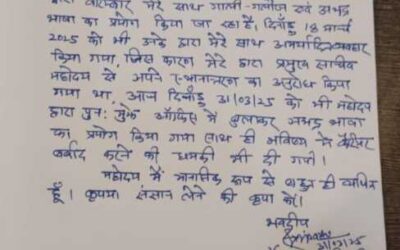 द्वारा बारम्बार मेरे साथ गाली-गलौज एवं अभद्र
भाषा का प्रयोग किया जा रहा है, दिनाँक 18 मार्च
2025 को भी उनके द्वारा मेरे साथ अमर्यादित व्यवहार
किया गया, जिस कारण मेरे द्वारा प्रमुख सचिव
महोदय से अपने स्थानान्तरण का अनुरोध किया
गया था, आज दिनाँक 31/03/25 को भी महोदय
द्वारा पुनः मुझे ऑफिस में बुलाकर अभद्र भाषा
का प्रयोग किया गया साथ ही भविष्य में कैरियर
बर्बाद करने की धमकी भी दी गयी।
महोदय मैं मानसिक रूप से बहुत ही व्यथित
हूँ। कृपया संज्ञान लेने की कृपा करें।
भवदीय